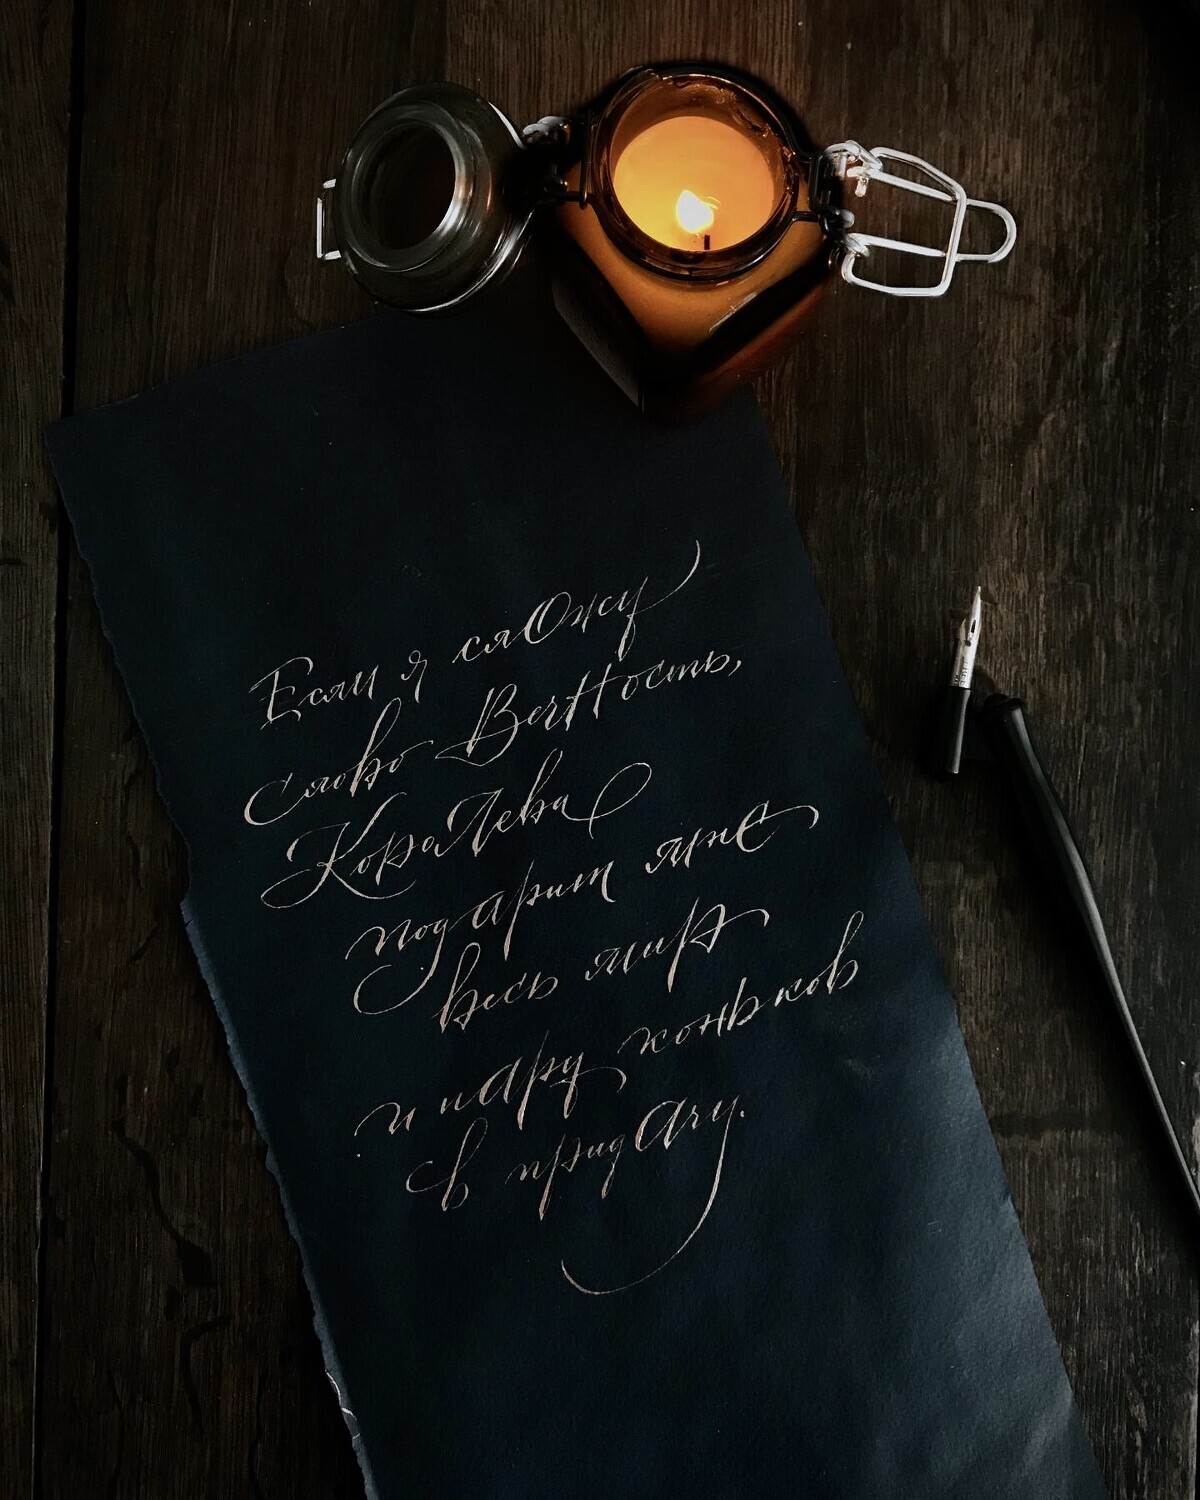 Если я слОжу
слово ВечНость,
Королева
подарит мне
весь мир
и пару коньков
в придачу.